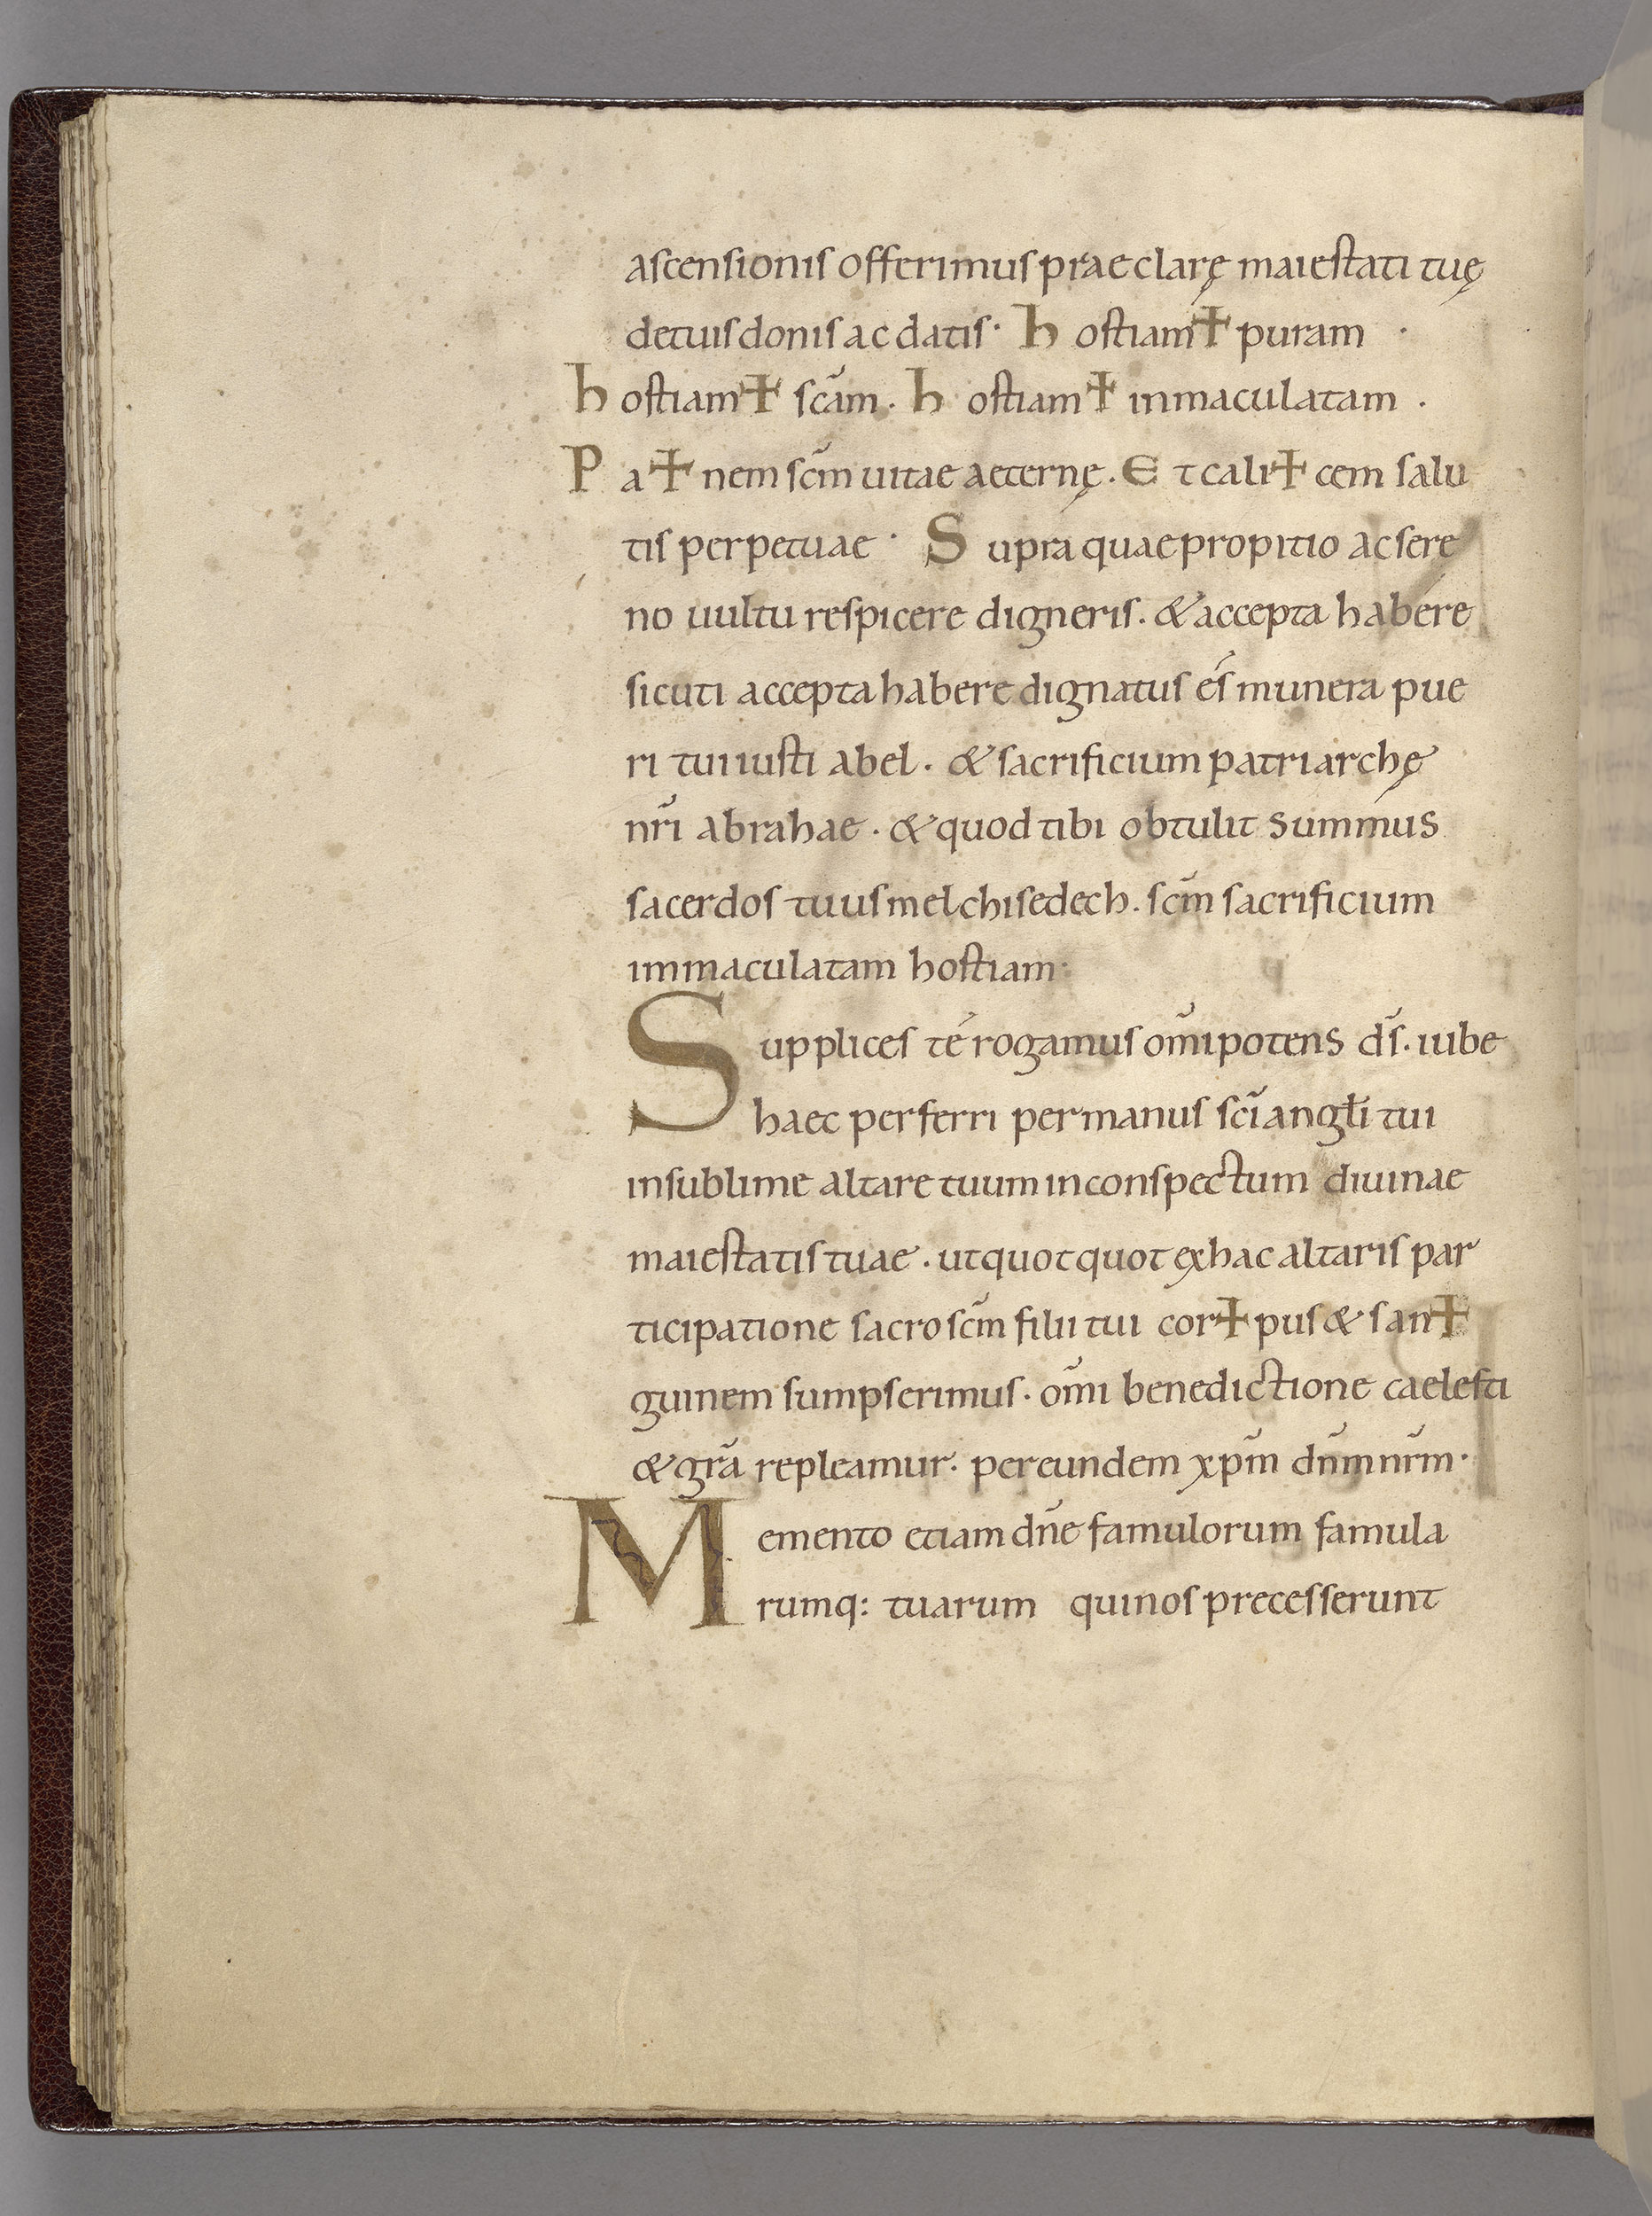 ascensionis offerimus praeclarę maiestati tuę
de tuis donis ac datis · hostiam ✝ puram ·
hostiam ✝ scām · hostiam ✝ inmaculatam ·
Pa ✝ nem scm̄ uitae aeternę · Et cali ✝ cem salu
tis perpetuae · Supra quae propitio ac sere
no uultu respicere digneris · & accepta habere
sicuti accepta habere dignatus és munera pue
ri tui iusti abel · & sacrificium patriarchę
nr̄i abrahae · & quod tibi obtulit summus
sacerdos tuus melchisedech · scm̄ sacrificium
immaculatam hostiam ·
Supplices té rogamus om̄ipotens ds̄ · iube
haec perferri per manus scī angl̄i tui
in sublime altare tuum in conspectum diuinae
maiestatis tuae · ut quot quot ex hac altaris par
ticipatione sacro scm̄ filii tui cor ✝ pus & san ✝
guinem sumpserimus · om̄i benedictione caelesti
& grā repleamur · per eundem xpm̄ dn̄m nr̄m ·
Memento etiam dn̄e famulorum famula
rumq: tuarum qui nos precesserunt